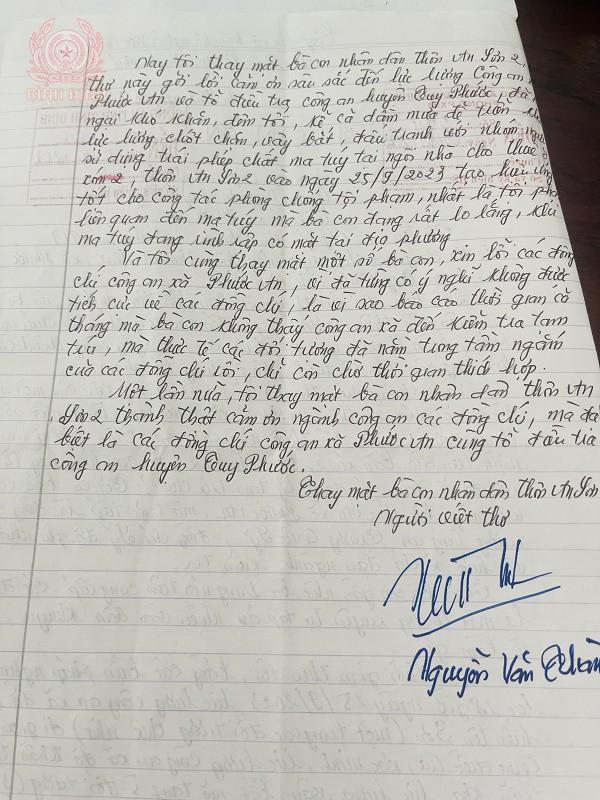 Nay tôi thay mặt bà con nhân dân thôn An Sơn 2,
thư này gởi lời cảm ơn sâu sắc đến lực lượng Công an
Phước An và tổ điều tra công an huyện Tuy Phước, đã
ngại khó khăn, đêm tối, kể cả dầm mưa để tuần
lực lượng chốt chặn, vây bắt, đấu tranh với nhóm
sử dụng trái phép chất ma túy tại ngôi nhà cho thuê
xóm 2 thôn An Sơn 2 vào ngày 25/9/2023 tạo hiệu ứng
tốt cho công tác phòng chống tội phạm, nhất là tội phạm
liên quan đến ma túy mà bà con đang rất lo lắng, khi
ma túy đang rình rập có mặt tại địa phương
Và tôi cũng thay mặt một số bà con, xin lỗi các đồng
chí công an xã Phước An, vì đã từng có ý nghĩ không được
tích cực về các đồng chí, là vì sao báo cáo thời gian cả
tháng mà bà con không thấy công an xã đến kiểm tra tạm
trú, mà thực tế các đối tượng đã nằm trong tầm ngắm
của các đồng chí rồi, chỉ còn chờ thời gian thích hợp.
Một lần nữa, tôi thay mặt bà con nhân dân thôn An
Sơn 2 thành thật cảm ơn ngành công an các đồng chí, mà đặ
biệt là các đồng chí công an xã Phước An cùng tổ điều tra
công an huyện Tuy Phước.
Thay mặt bà con nhân dân thôn An Sơn
Người viết thơ
Nguyễn Văn